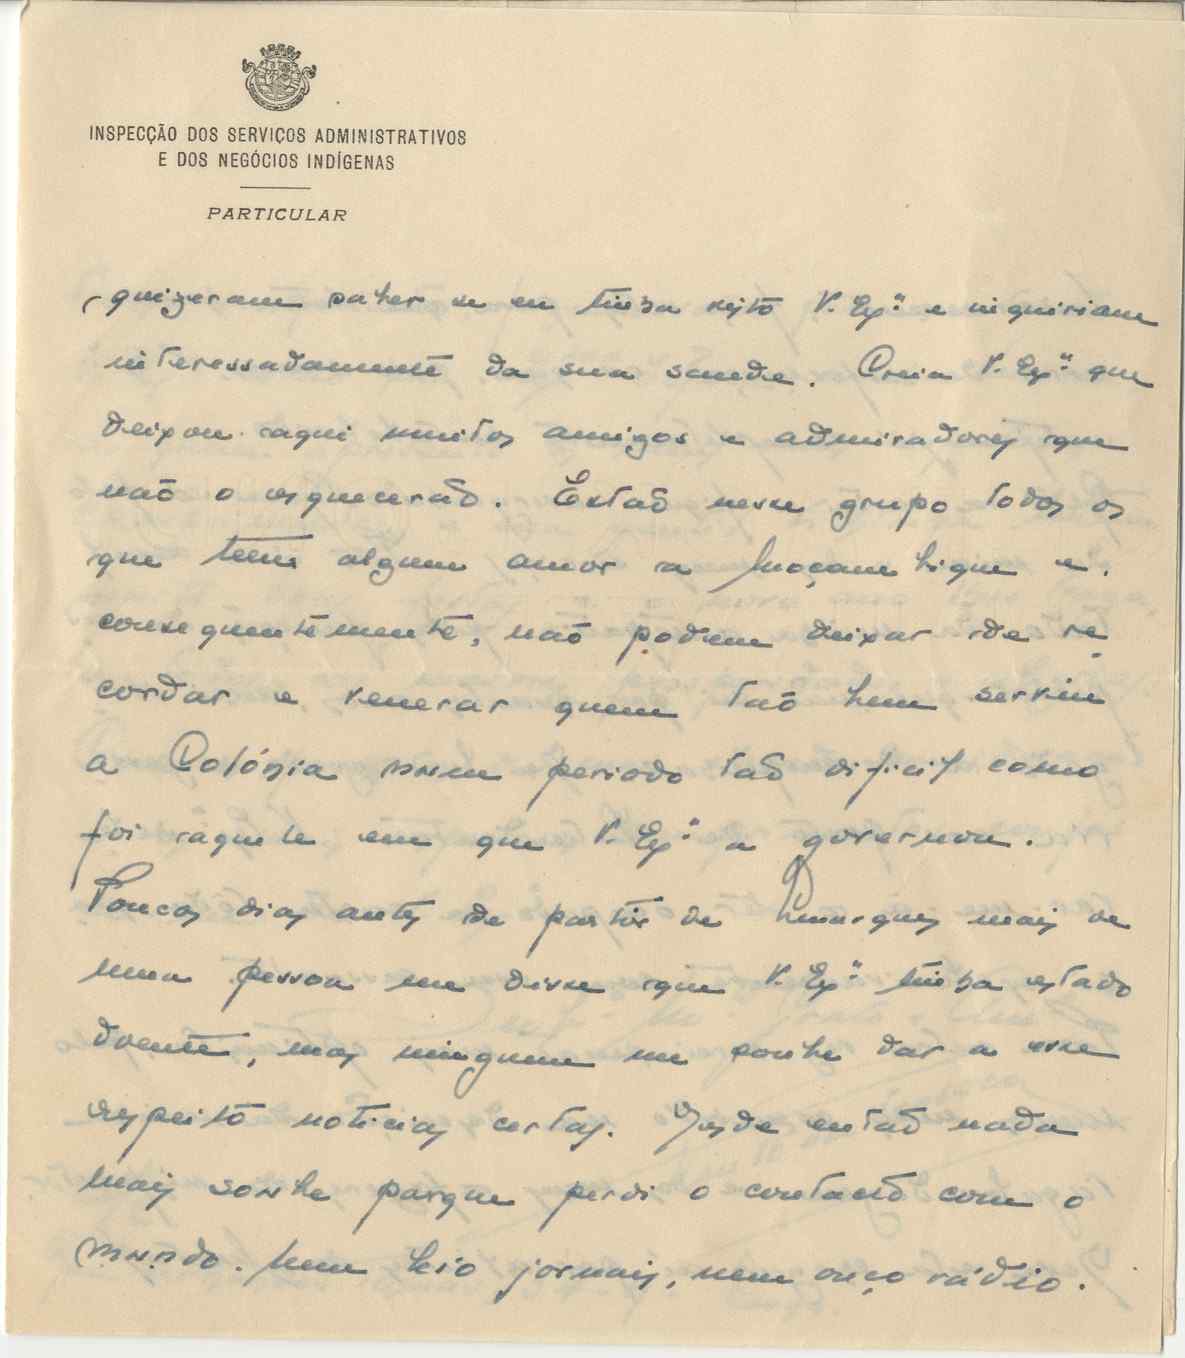 INSPECÇÃO DOS SERVIÇOS ADMINISTRATIVOS
E DOS NEGÓCIOS INDÍGENAS
PARTICULAR
quizeram saber se eu tinha visto V. Exª e inquiriam
interessadamente da sua saude. Creia V. Exª que
deixou aqui muitos amigos e admiradores que
não o esquecerão. Estão nesse grupo todos os
que teem algum amor a Moçambique e,
consequentemente, não podem deixar de re
cordar e venerar quem tão bem serviu
a Colónia num periodo tão dificil como
foi aquele em que V. Exª a governou.
Poucos dias antes de partir de Lmarques mais de
uma pessoa me disse que V. Exª tinha estado
doente, mas ninguem me soube dar a esse
respeito noticias certas. Desde então nada
mais soube porque perdi o contacto com o
mundo. Nem leio jornais, nem ouço rádio.